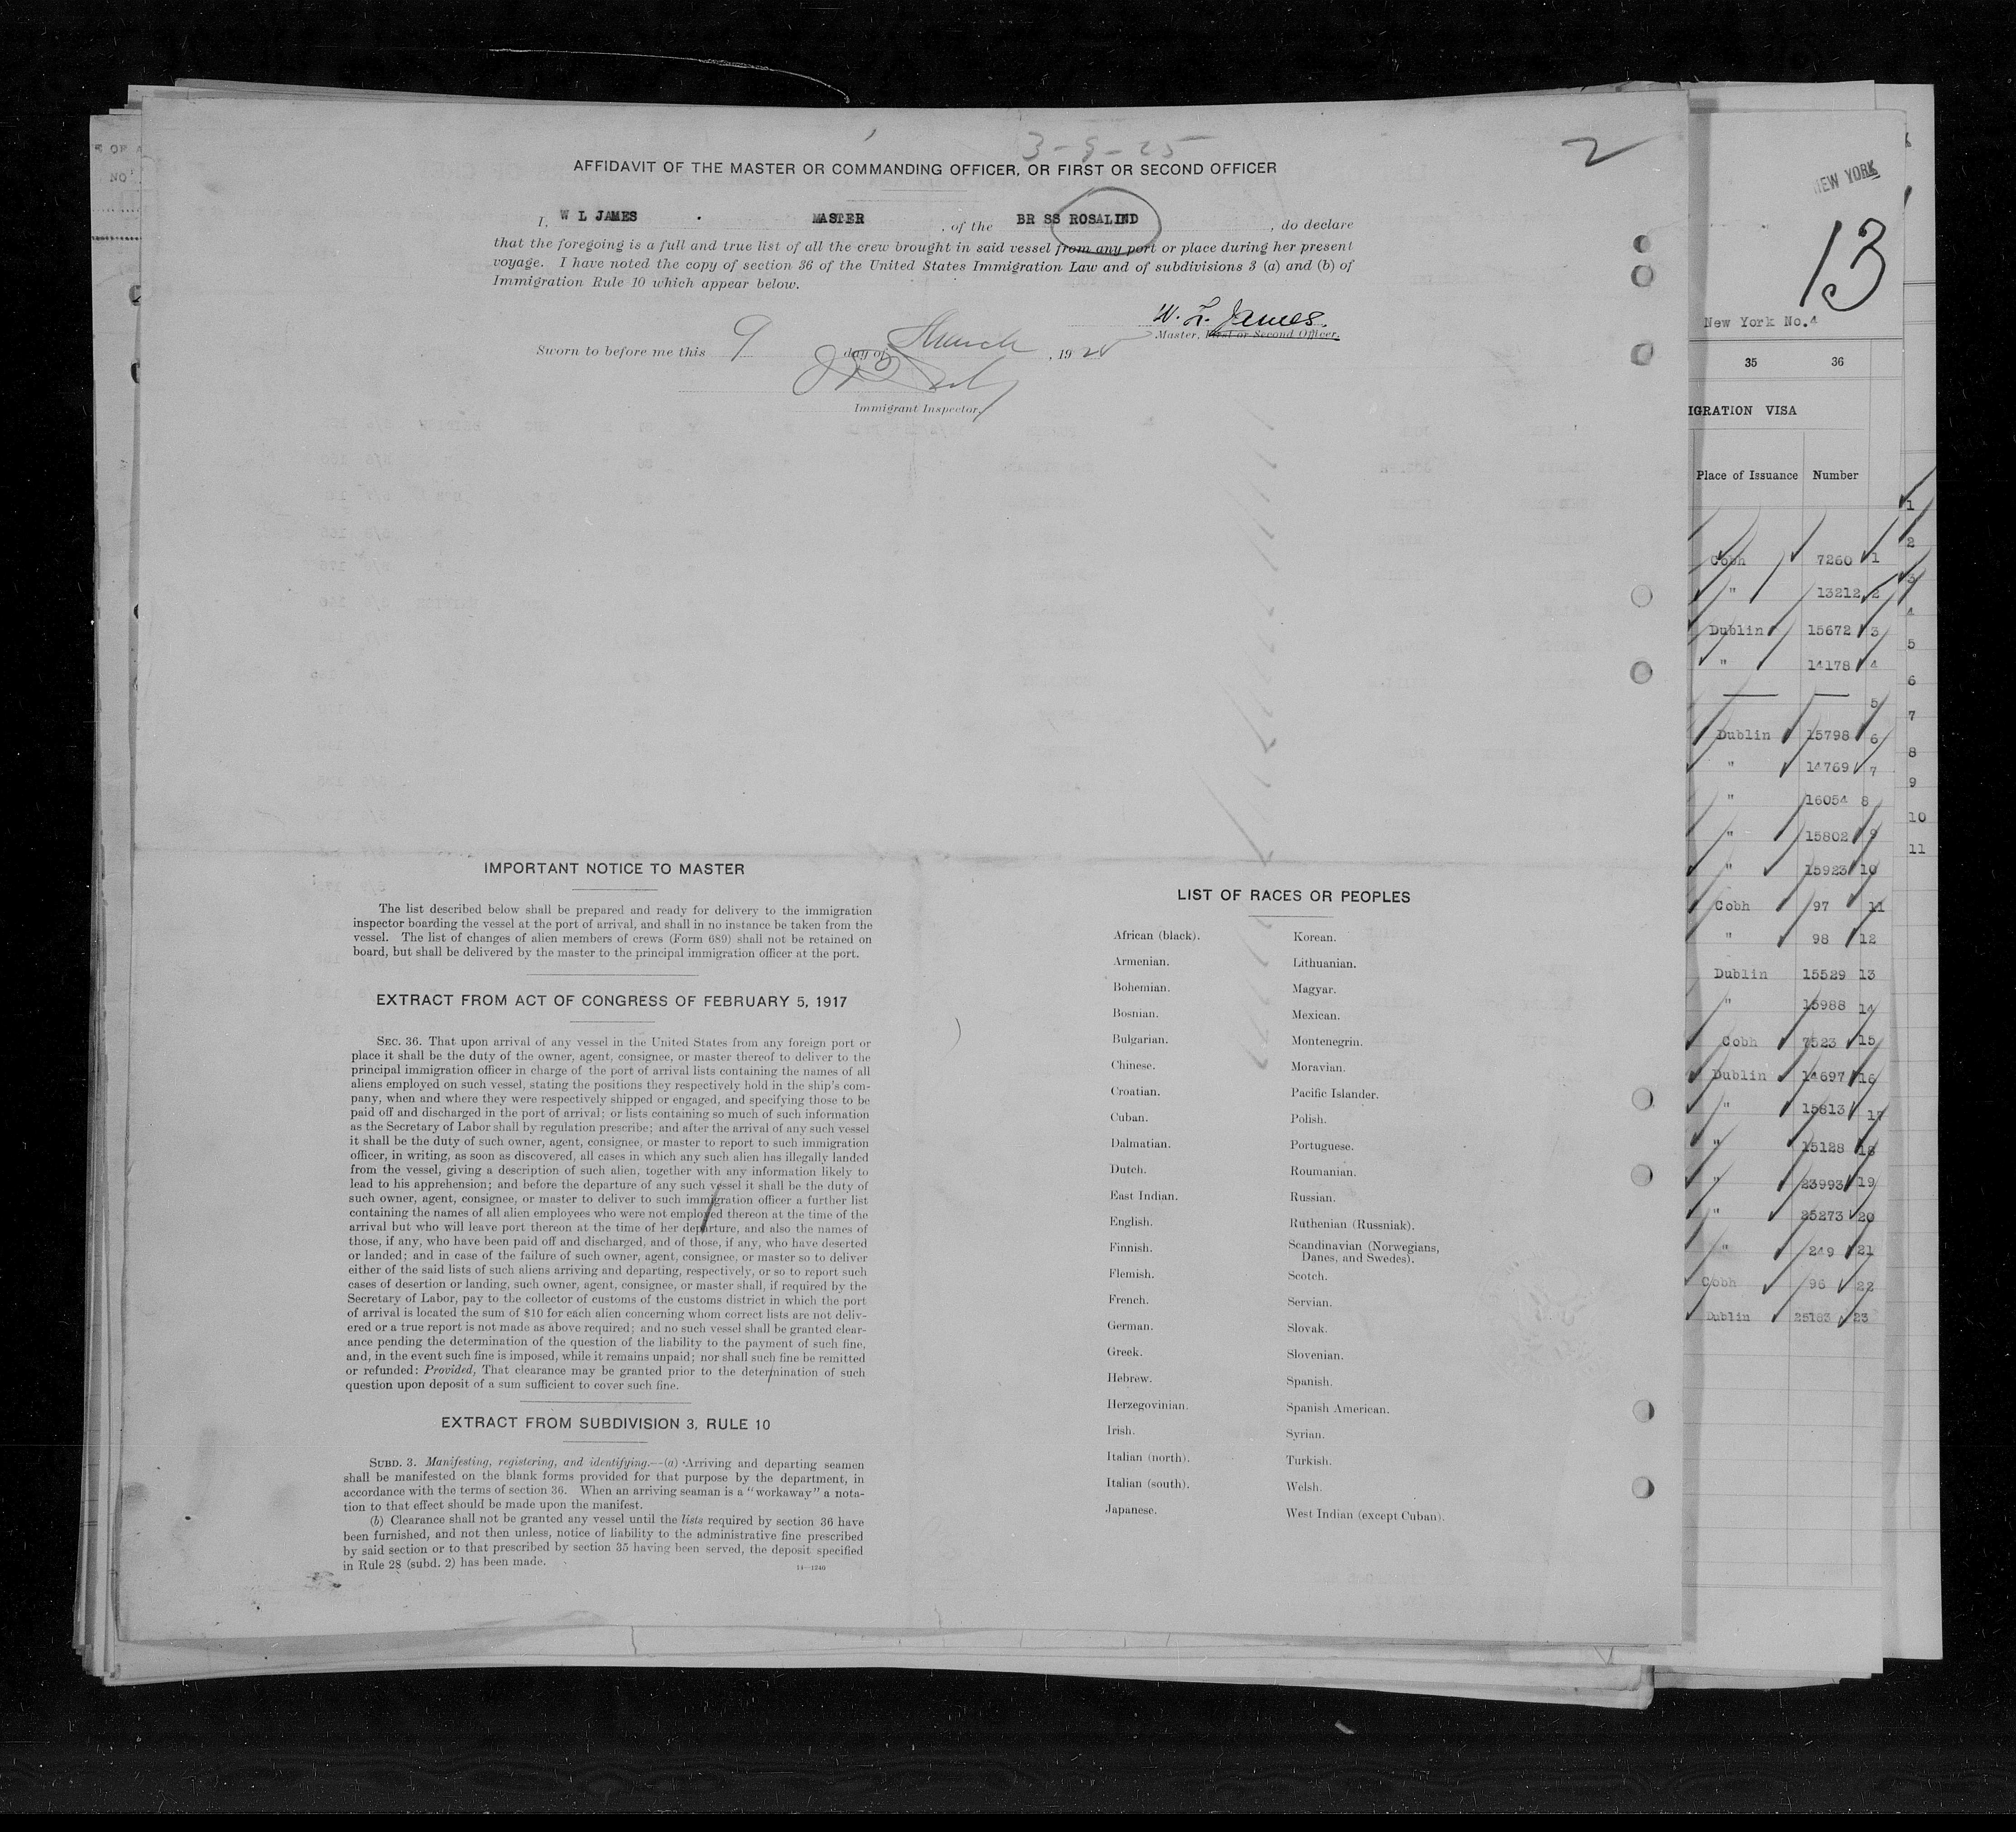 3-9-25
2
AFFIDAVIT OF THE MASTER OR COMMANDING OFFICER, OR FIRST OR SECOND OFFICER
I, W L JAMES . MASTER , of the BR SS ROSALIND , do declare
that the foregoing is a full and true list of all the crew brought in said vessel from any port or place during her present
voyage. I have noted the copy of section 36 of the United States Immigration Law and of subdivisions 3 (a) and (b) of
Immigration Rule 10 which appear below.
W. L. James.
Master, First or Second Officer.
Sworn to before me this 9 day of March , 1925
Immigrant Inspector.
IMPORTANT NOTICE TO MASTER
The list described below shall be prepared and ready for delivery to the immigration
inspector boarding the vessel at the port of arrival, and shall in no instance be taken from the
vessel. The list of changes of alien members of crews (Form 689) shall not be retained on
board, but shall be delivered by the master to the principal immigration officer at the port.
EXTRACT FROM ACT OF CONGRESS OF FEBRUARY 5, 1917
SEC. 36. That upon arrival of any vessel in the United States from any foreign port or
place it shall be the duty of the owner, agent, consignee, or master thereof to deliver to the
principal immigration officer in charge of the port of arrival lists containing the names of all
aliens employed on such vessel, stating the positions they respectively hold in the ship's com-
pany, when and where they were respectively shipped or engaged, and specifying those to be
paid off and discharged in the port of arrival; or lists containing so much of such information
as the Secretary of Labor shall by regulation prescribe; and after the arrival of any such vessel
it shall be the duty of such owner, agent, consignee, or master to report to such immigration
officer, in writing, as soon as discovered, all cases in which any such alien has illegally landed
from the vessel, giving a description of such alien, together with any information likely to
lead to his apprehension; and before the departure of any such vessel it shall be the duty of
such owner, agent, consignee, or master to deliver to such immigration officer a further list
containing the names of all alien employees who were not employed thereon at the time of the
arrival but who will leave port thereon at the time of her departure, and also the names of
those, if any, who have been paid off and discharged, and of those, if any, who have deserted
or landed; and in case of the failure of such owner, agent, consignee, or master so to deliver
either of the said lists of such aliens arriving and departing, respectively, or so to report such
cases of desertion or landing, such owner, agent, consignee, or master shall, if required by the
Secretary of Labor, pay to the collector of customs of the customs district in which the port
of arrival is located the sum of $10 for each alien concerning whom correct lists are not deliv-
ered or a true report is not made as above required; and no such vessel shall be granted clear-
ance pending the determination of the question of the liability to the payment of such fine,
and, in the event such fine is imposed, while it remains unpaid; nor shall such fine be remitted
or refunded: Provided, That clearance may be granted prior to the determination of such
question upon deposit of a sum sufficient to cover such fine.
EXTRACT FROM SUBDIVISION 3, RULE 10
SUBD. 3. Manifesting, registering, and identifying.—(a) Arriving and departing seamen
shall be manifested on the blank forms provided for that purpose by the department, in
accordance with the terms of section 36. When an arriving seaman is a "workaway" a nota-
tion to that effect should be made upon the manifest.
(b) Clearance shall not be granted any vessel until the lists required by section 36 have
been furnished, and not then unless, notice of liability to the administrative fine prescribed
by said section or to that prescribed by section 35 having been served, the deposit specified
in Rule 28 (subd. 2) has been made.
14—1240
LIST OF RACES OR PEOPLES
African (black). Korean.
Armenian. Lithuanian.
Bohemian. Magyar.
Bosnian. Mexican.
Bulgarian. Montenegrin.
Chinese. Moravian.
Croatian. Pacific Islander.
Cuban. Polish.
Dalmatian. Portuguese.
Dutch. Roumanian.
East Indian. Russian.
English. Ruthenian (Russniak).
Finnish. Scandinavian (Norwegians,
Danes, and Swedes).
Flemish. Scotch.
French. Servian.
German. Slovak.
Greek. Slovenian.
Hebrew. Spanish.
Herzegovinian. Spanish American.
Irish. Syrian.
Italian (north). Turkish.
Italian (south). Welsh.
Japanese. West Indian (except Cuban).
NEW YORK
13
New York No.4
35 36
IGRATION VISA
Place of Issuance Number
Cobh 7260 1
" 13212 2
Dublin 15672 3
" 14178 4
5
Dublin 15798 6
" 14769 7
" 16054 8
" 15802 9
" 15923 10
Cobh 97 11
" 98 12
Dublin 15529 13
" 15988 14
Cobh 7523 15
Dublin 14697 16
" 15813 17
" 15128 18
" 23993 19
" 25273 20
" 249 21
Cobh 96 22
Dublin 25183 23
1
2
3
4
5
6
7
8
9
10
11